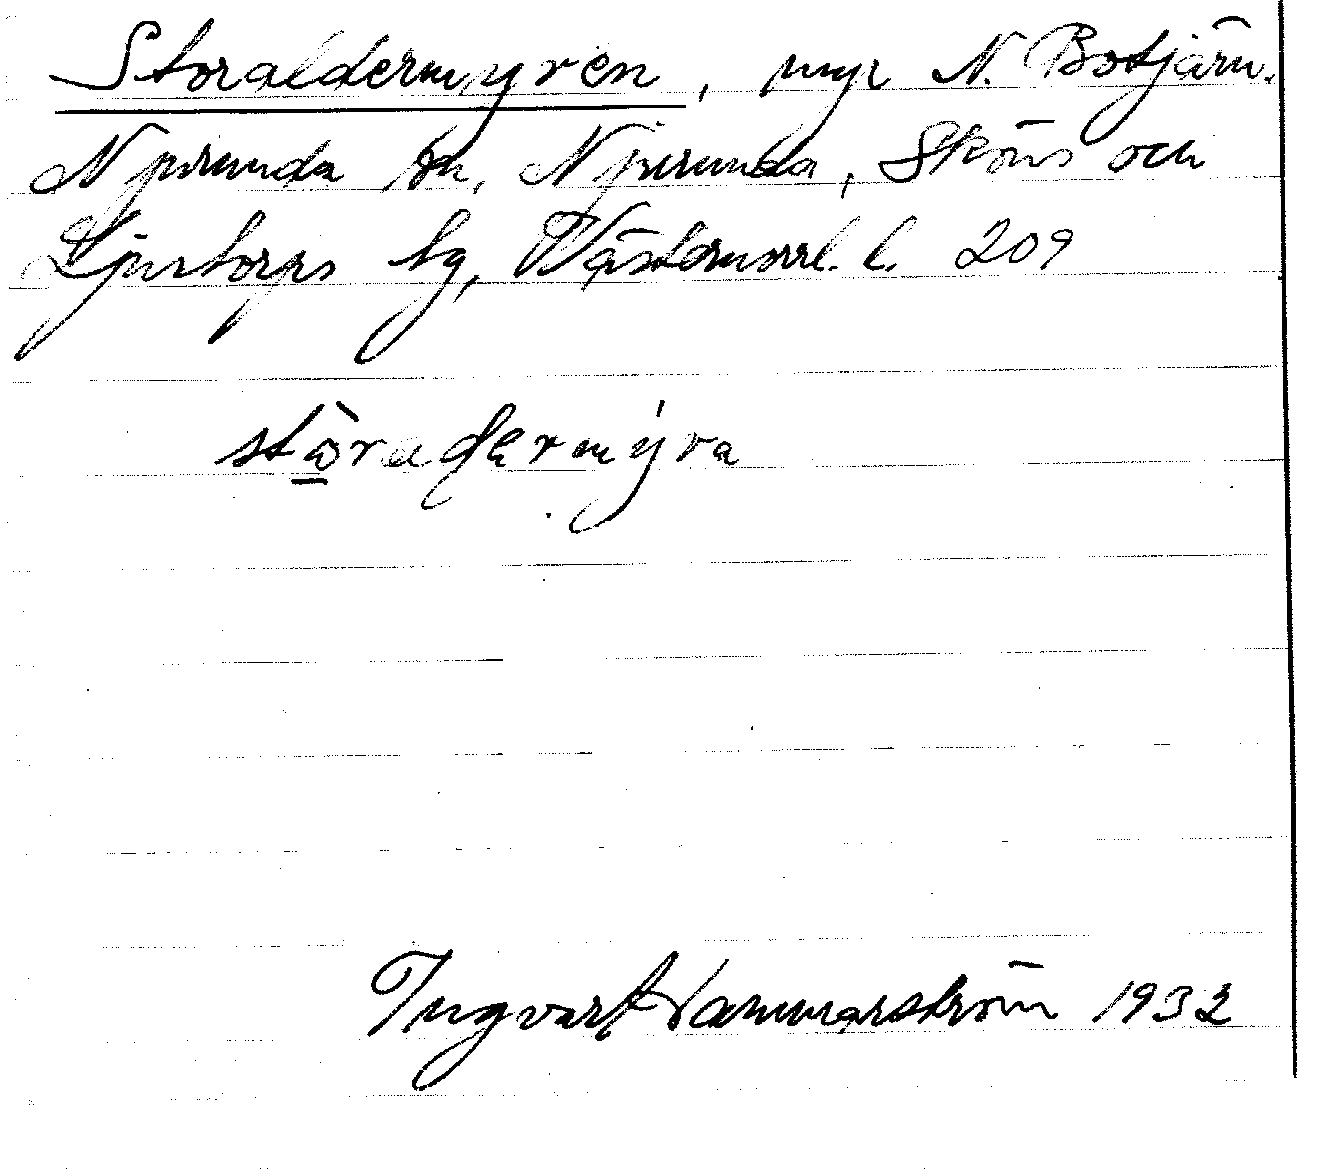 Storaldermyren, myr N. Botjärn.
Njurunda sn, Njurunda, Sköns och
Ljustorps tg, Västernorrl. l. 209
stòradermýra
Ingvart Hammarström 1932